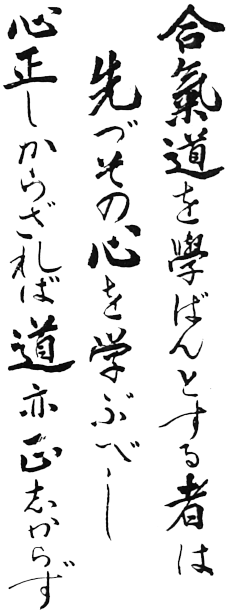 合氣道を學ばんとする者は
先づその心を学ぶべし
心正しからざれば道亦正志からず